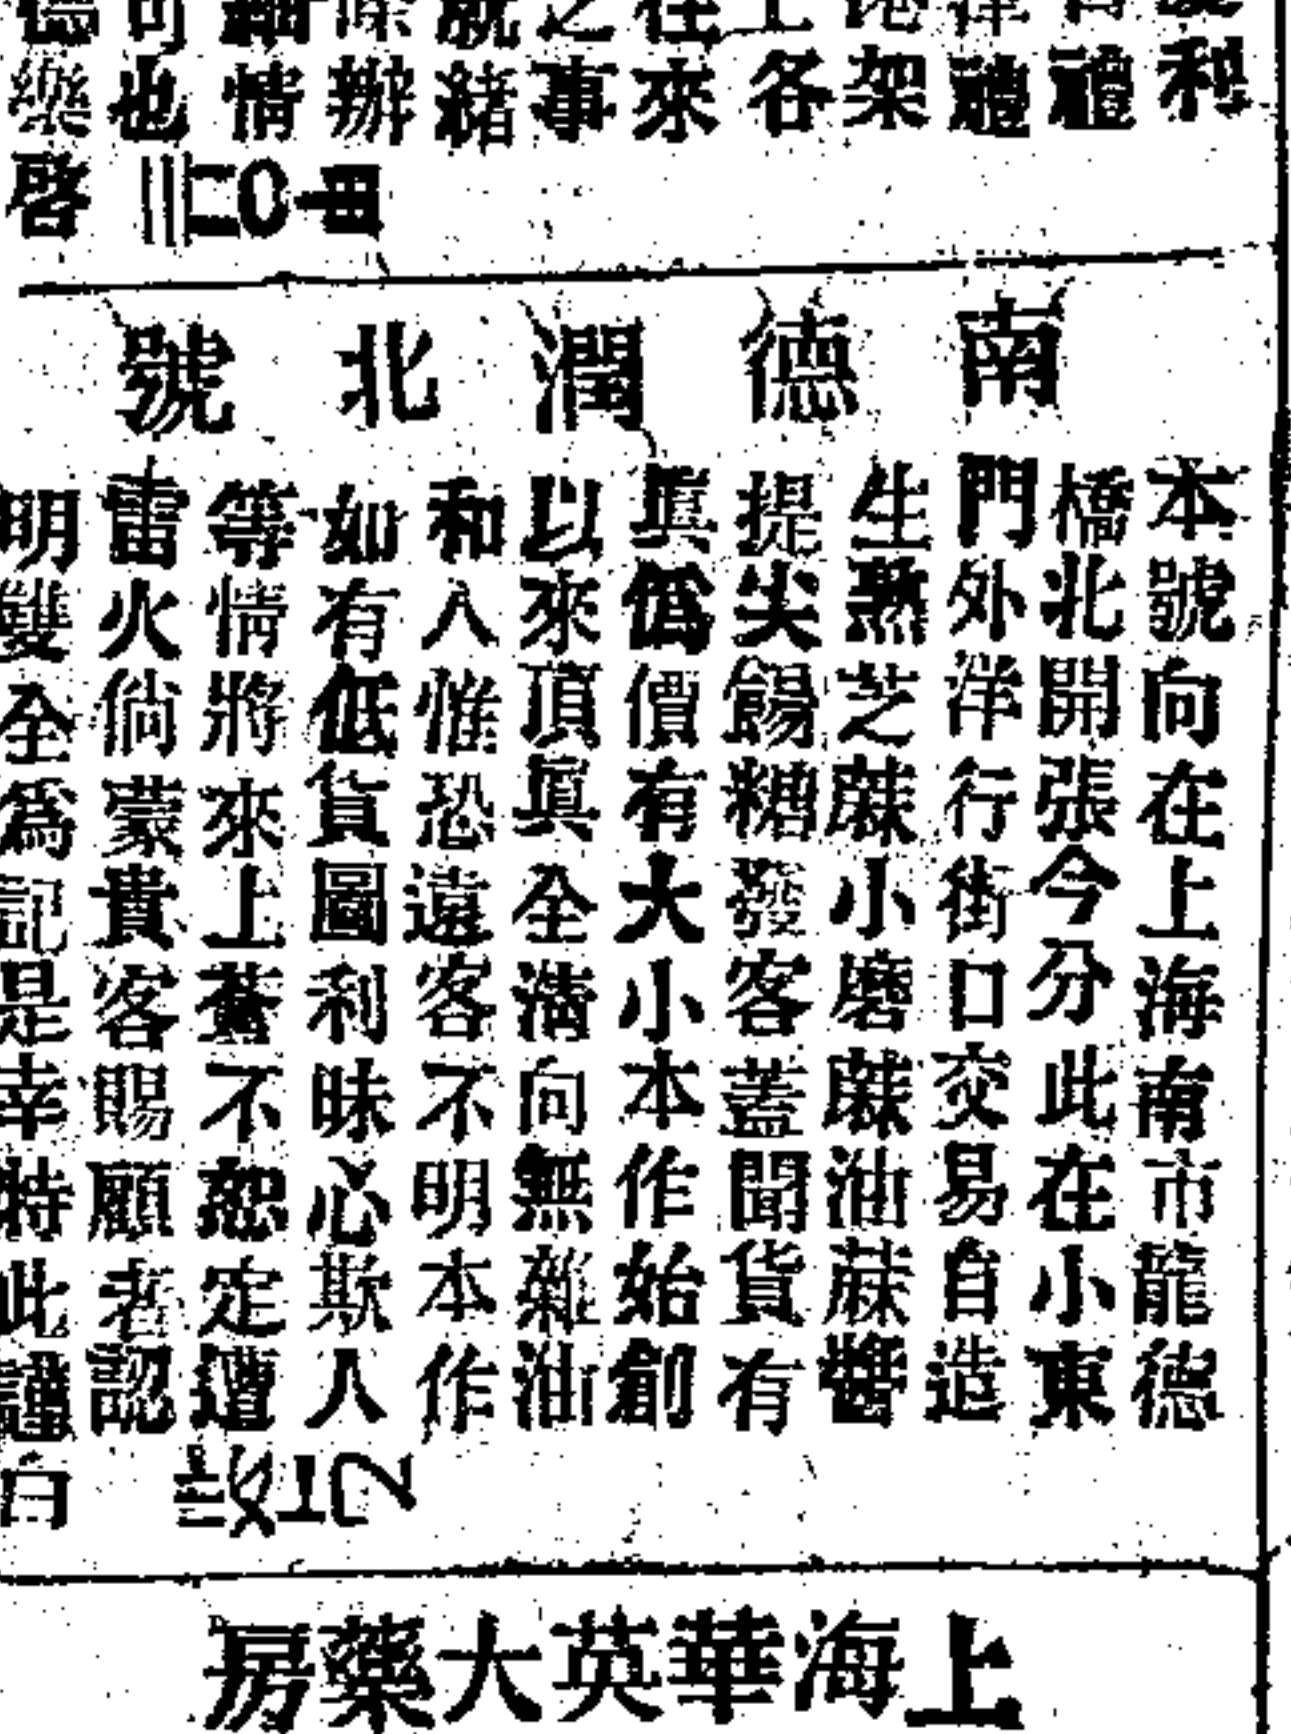 利
禮
禮
架
各
來
事
緒
辦
情
也
樂啓
南德潤北號
本號向在上海南市龍德
橋北開張今分此在小東
門外洋行街口交易自造
生熟芝蔴小磨蔴油蔴醬
提尖餳糖發客蓋聞貨有
眞僞價有大小本作始創
以來頂眞全淸向無雜油
和入惟恐遠客不明本作
如有低貨圖利昧心欺人
等情將來上蒼不恕定遭
雷火倘蒙貴客賜顧者認
明雙全爲記是幸特此謹白
上海華英大藥房